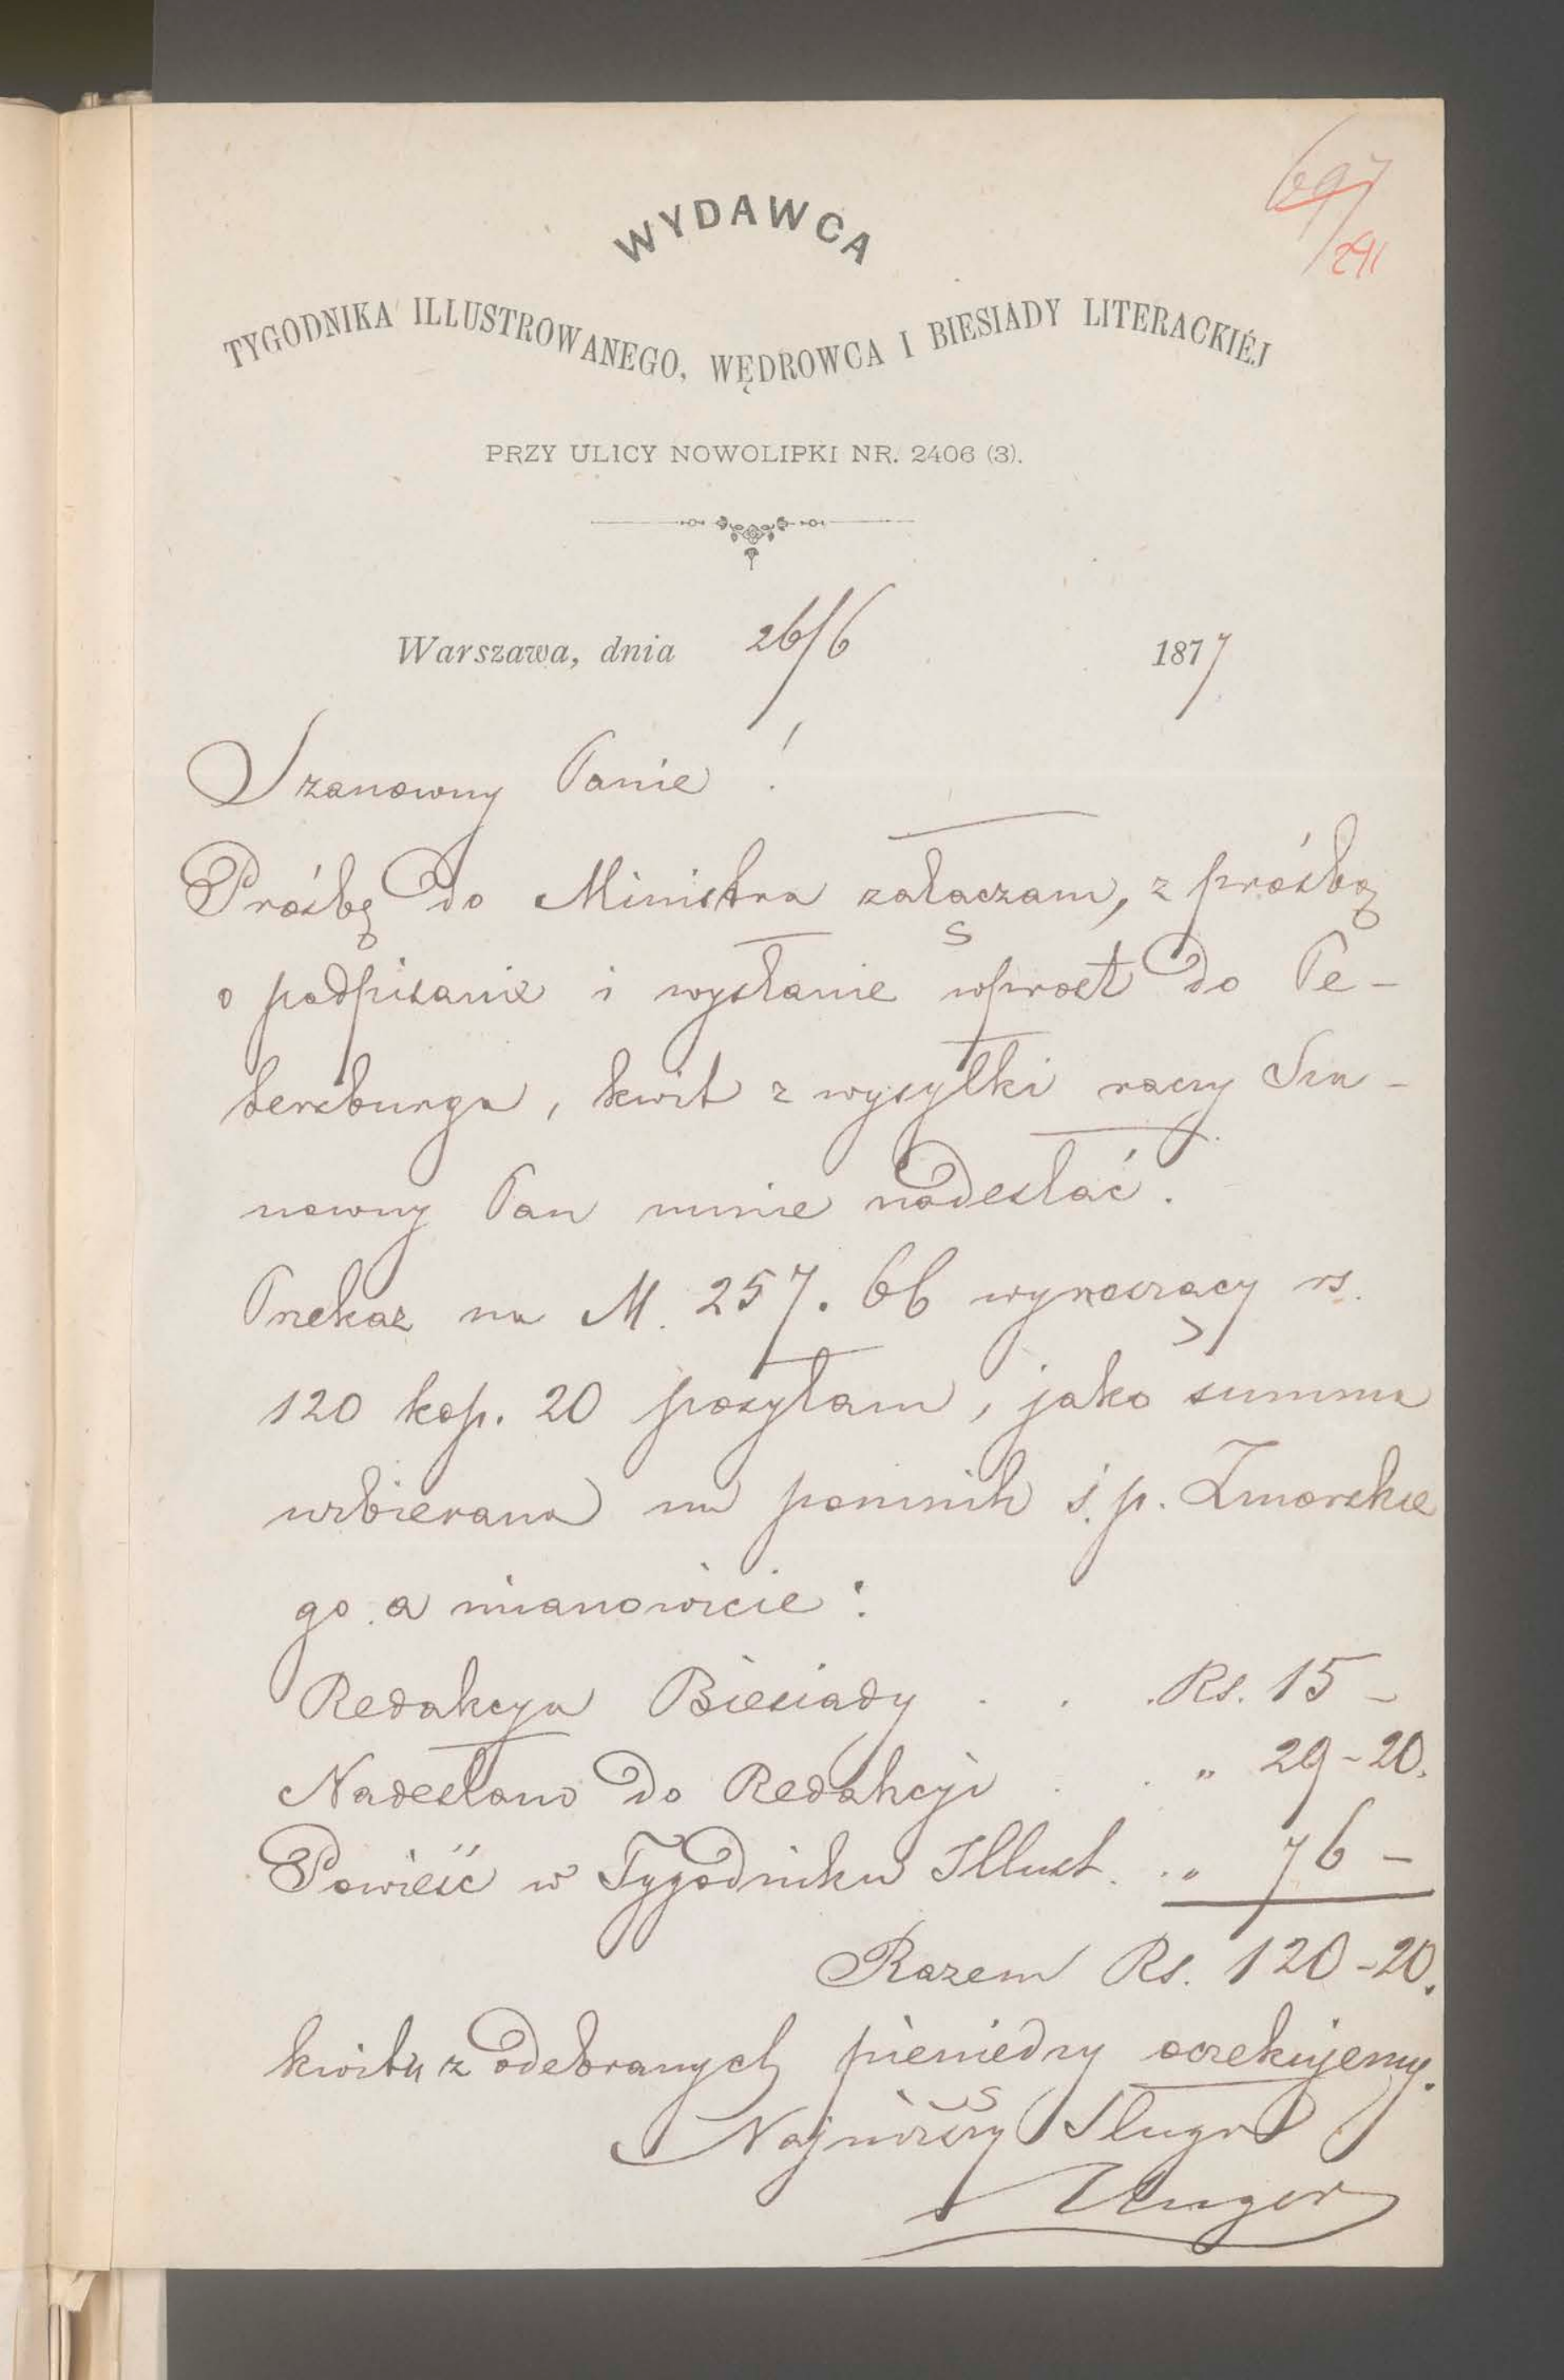 697
291
WYDAWCA
TYGODNIKA ILLUSTROWANEGO, WĘDROWCA I BIESIADY LITERACKIÉJ
PRZY ULICY NOWOLIPKI NR. 2406 (3).
Warszawa, dnia 26/6 1877
Szanowny Panie!
Prośbę do Ministra załączam, z prośbą
o podpisanie i wysłanie wprost do Pe-
tersburga, kwit z wysyłki raczy Sza-
nowny Pan mnie nadesłać.
Przekaz na M. 257. 66 wynoszący rs.
120 kop. 20 posyłam, jako summa
uzbierana na pomnik ś. p. Zmorskie
go a mianowicie:
Redakcya Biesiady . . . Rs. 15 -
Nadesłano do Redakcyi . . " 29-20.
Powieść w Tygodniku Illust. . " 76 -
Razem Rs. 120-20.
kwitu z odebranych pieniedzy oczekujemy.
Najniższy Sługa
Unger